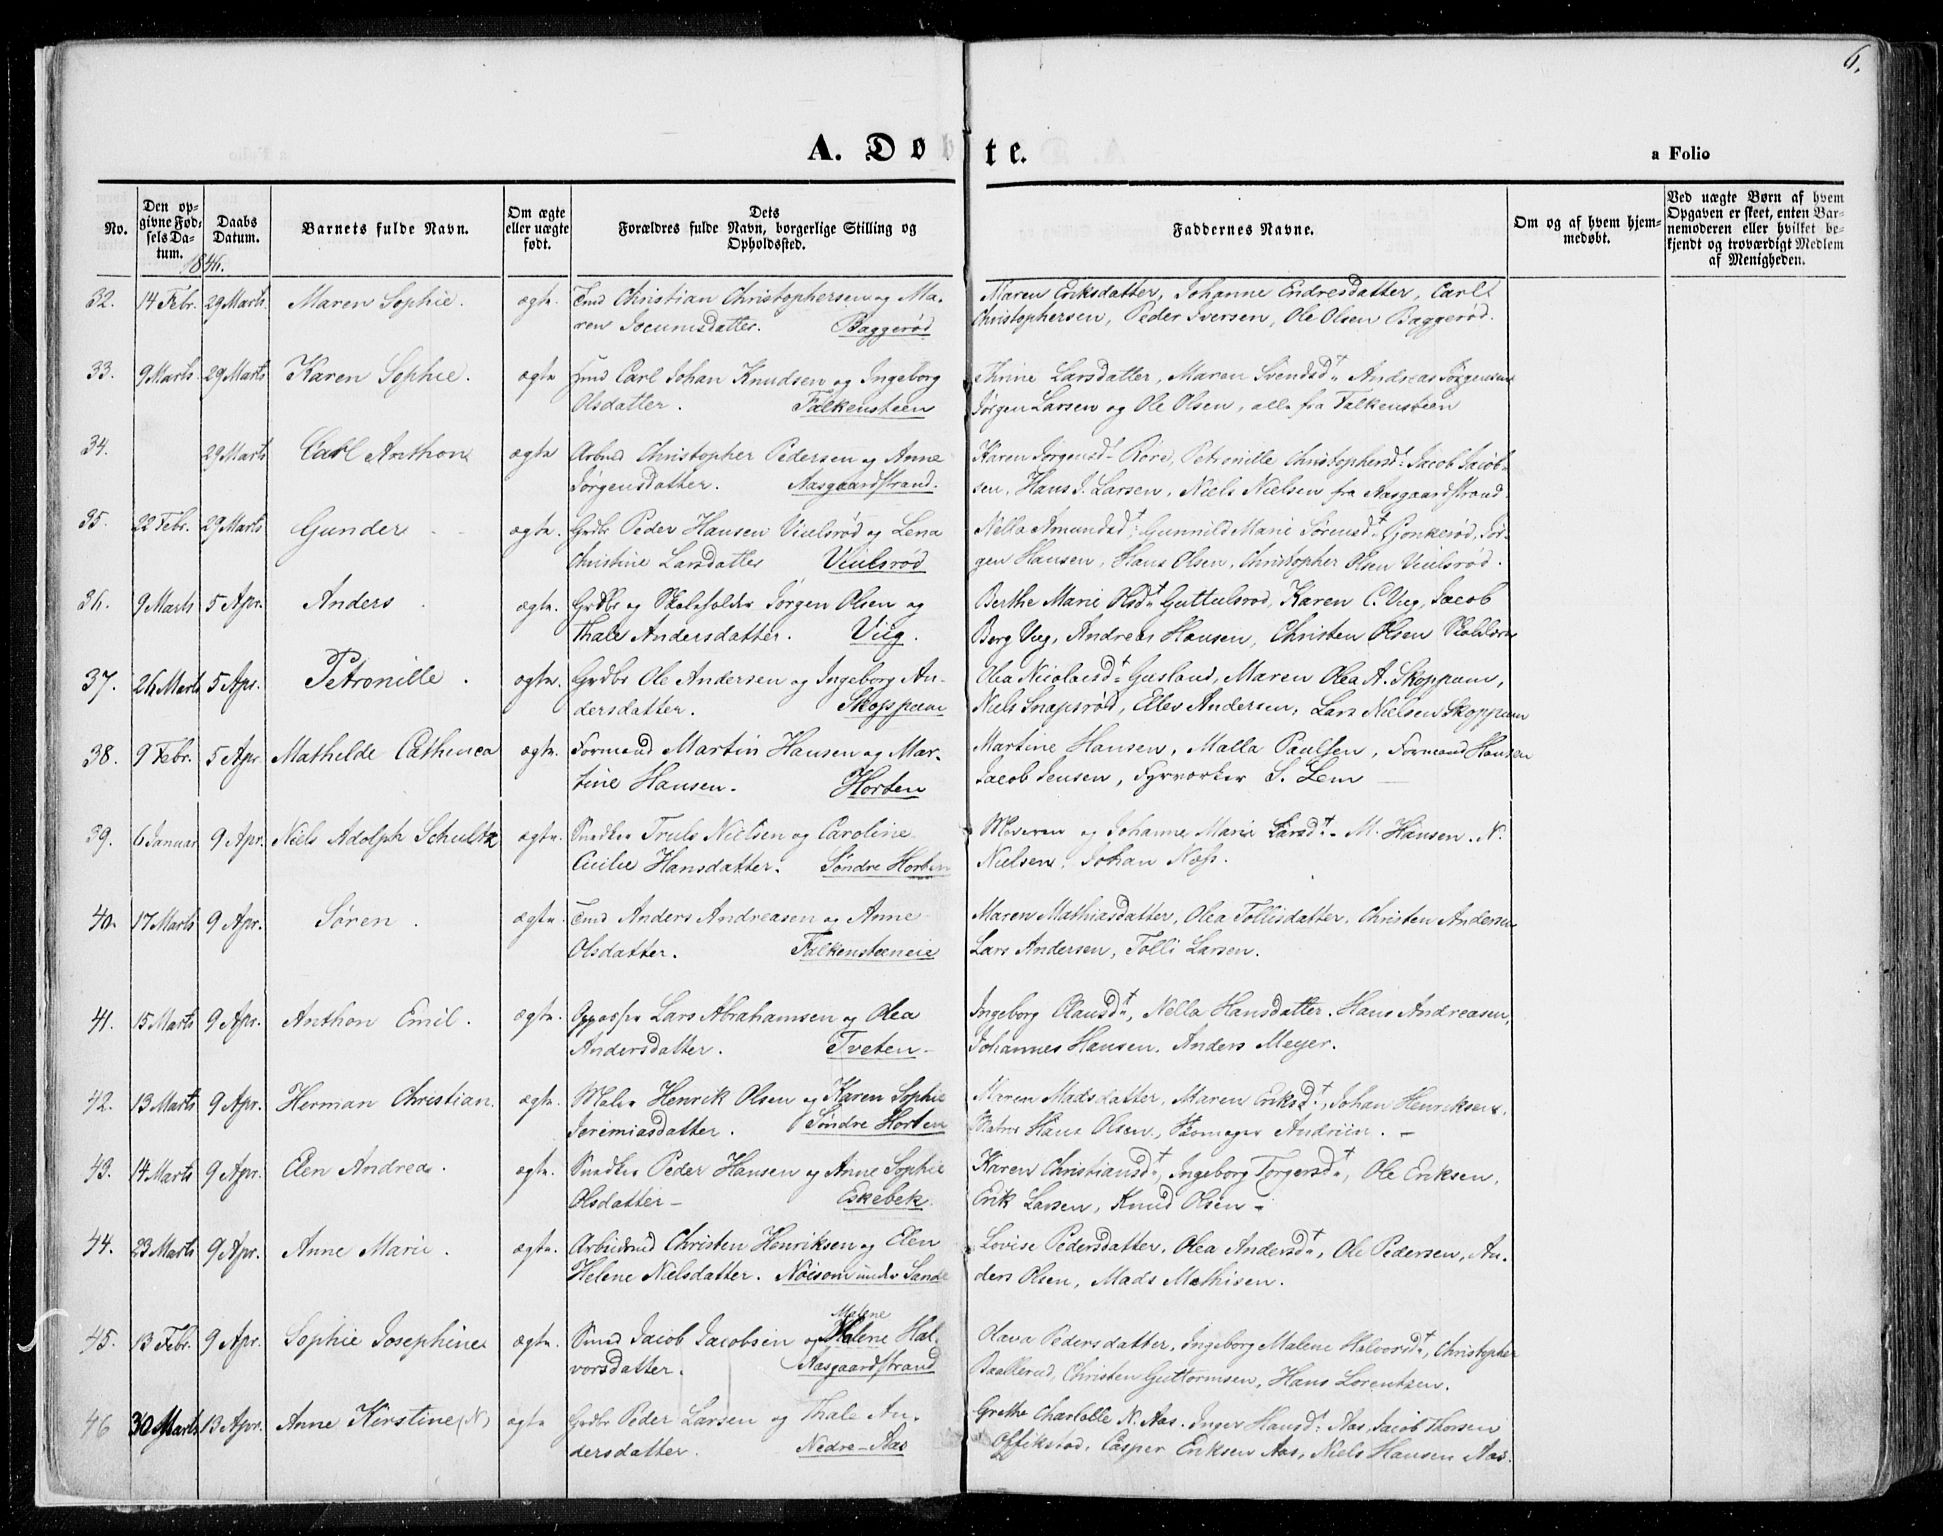 6.
A. Døbte.
a Folio
No. | Den opgivne Fødselsdatum. | Daabs Datum. | Barnets fulde Navn. | Om ægte eller uægte født. | Dets Forældres fulde Navn, borgerlige Stilling og Opholdssted. | Faddernes Navne. | Om og af hvem hjemmedøbt. | Ved uægte Børn af hvem Opgaven er skeet, enten Barnemoderen eller hvilket bekjendt og troværdigt Medlem af Menigheden.
1846.
32. 14 Febr. 29 Marts Maren Sophie. ægte. Christian Christophersen og Ma- Maren Eriksdatter, Johanne Endresdatter, Carl
ren Jocumsdatter. Baggerød Christophersen, Peder Iversen, Ole Olsen Baggerød.
33. 9 Marts 29 Marts Karen Sophie. ægte Carl Johan Knudsen og Ingeborg Thrine Larsdatter, Maren Svendsd. Andreas Jørgensen
Olsdatter. Falkensteen Jørgen Larsen og Ole Olsen, alle fra Falkensteen
34. 29 Marts Carl Anthon ægte Arbmd Christopher Pedersen og Anne Karen Jørgensd. Røre, Petronille Christophersd. Jacob Jacob-
Jørgensdatter. Aasgaardstrand. sen, Hans J. Larsen, Niels Nielsen fra Aasgaardstrand.
35. 22 Febr. 29 Marts Gunder ægte. Grdbr Peder Hansen Viulsrød og Lena Nella Amundsd. Gunnild Marie Sørensd. Gjonkerød, Jør-
Christine Larsdatter Viulsrød gen Hansen, Hans Olsen, Christopher Olsen Viulsrød.
36. 9 Marts 5 Apr. Anders. ægte. Grdbr og Skoleholder Jørgen Olsen og Berthe Marie Olsd. Guttulsrod, Karen C. Viig, Jacob
Thale Andersdatter. Viig. Borg Viig, Andreas Hansen, Christen Olsen
37. 26 Marts 5 Apr. Petronille. ægte. Grdbr Ole Andersen og Ingeborg An- Olea Nicolaisd. Gusland, Maren Olea A. Skoppum,
dersdatter. Skoppum Niels Snapsrød, Ellev Andersen, Lars Nielsen Skoppum
38. 9 Febr. 5 Apr. Mathilde Cathinca ægte. Formand Martin Hansen og Mar- Martine Hansen, Malla Paulsen, Formand Hansen
tine Hansen. Horten Jacob Jensen, Fyrvorker S. Lem
39. 6 Januar 9 Apr. Niels Adolph Schultz ægte. Smedker Truls Nielsen og Caroline Moderen og Johanne Marie Larsd. M. Hansen. N.
Cicilie Hansdatter. Søndre Horten Nielsen. Johan Næss.
40. 17 Marts 9 Apr. Søren. ægte. Anders Andreasen og Anne Maren Mathiasdatter, Olea Tollisdatter, Christen Andersen
Olsdatter. Falkensteeneie Lars Andersen, Tolli Larsen.
41. 15 Marts 9 Apr. Anthon Emil. ægte. Lars Abrahamsen og Olea Ingeborg Olausd., Nella Hansdatter. Hans Andreasen,
Andersdatter. Tveten Johannes Hansen. Anders Meyer.
42. 13 Marts 9 Apr. Herman Christian. ægte. Maler Henrik Olsen og Karen Sophie Maren Madsdatter, Maren Eriksd., Johan Henriksen.
Jeremiasdatter. Søndre Horten Hans Olsen,
43. 14 Marts 9 Apr. Elen Andrea. ægte. Peder Hansen og Anne Sophie Karen Christiansd., Ingeborg Torgersd., Ole Eriksen,
Olsdatter Eskebek. Erik Larsen, Knud Olsen
44. 23 Marts 9 Apr. Anne Marie. ægte. Arbeidsmd Christen Henriksen og Elen Lovise Pedersdatter, Olea Andersd., Ole Pedersen, An-
Helene Nielsdatter. Noisom under Sande ders Olsen, Mads Mathisen.
45. 13 Febr. 9 Apr. Sophie Josephine ægte. Jacob Jacobsen og Malene Hal- Olava Pedersdatter, Ingeborg Malene Halvorsd., Christopher
vorsdatter. Aasgaardstrand Baallerud, Christen Guttormsen, Hans Lorentzen.
46 30 Marts 13 Apr. Anne Kirstine (N) ægte Grdbr Peder Larsen og Thale An- Grethe Charlotte N. Aas. Inger Hansd. Aas, Jacob Thorsen
dersdatter. Nedre-Aas Offikstad, Casper Eriksen Aas, Niels Hansen Aas.